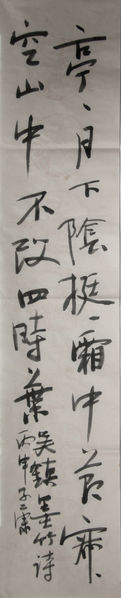 亭、月下陰挺、霜中节寂、
空山中不改四時葉
吴鎮墨竹诗
丙申